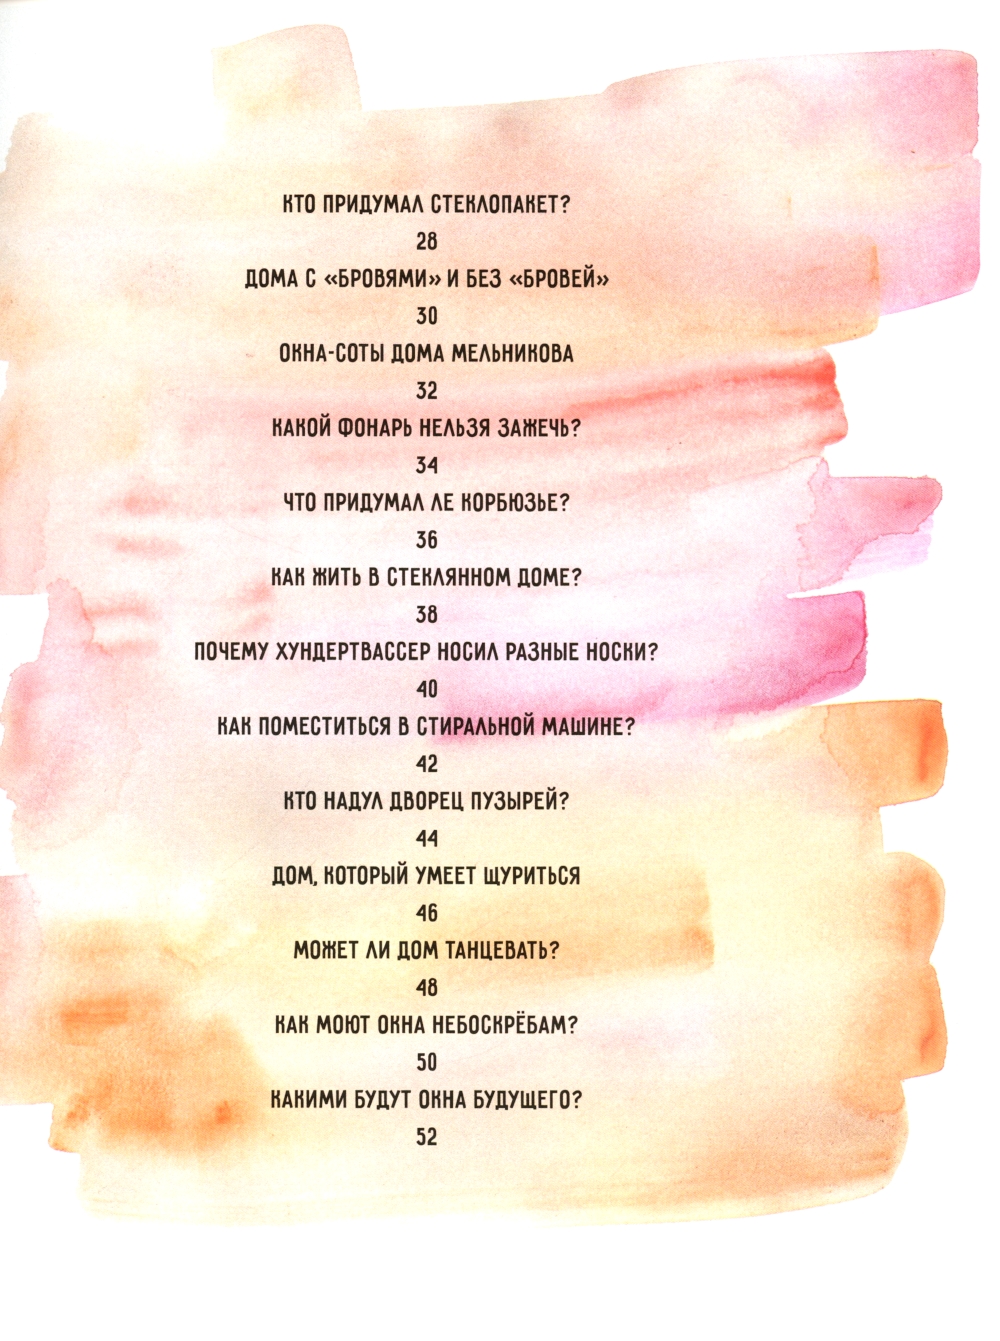 КТО ПРИДУМАЛ СТЕКЛОПАКЕТ?
28
ДОМА С «БРОВЯМИ» И БЕЗ «БРОВЕЙ»
30
ОКНА-СОТЫ ДОМА МЕЛЬНИКОВА
32
КАКОЙ ФОНАРЬ НЕЛЬЗЯ ЗАЖЕЧЬ?
34
ЧТО ПРИДУМАЛ ЛЕ КОРБЮЗЬЕ?
36
КАК ЖИТЬ В СТЕКЛЯННОМ ДОМЕ?
38
ПОЧЕМУ ХУНДЕРТВАССЕР НОСИЛ РАЗНЫЕ НОСКИ?
40
КАК ПОМЕСТИТЬСЯ В СТИРАЛЬНОЙ МАШИНЕ?
42
КТО НАДУЛ ДВОРЕЦ ПУЗЫРЕЙ?
44
ДОМ, КОТОРЫЙ УМЕЕТ ЩУРИТЬСЯ
46
МОЖЕТ ЛИ ДОМ ТАНЦЕВАТЬ?
48
КАК МОЮТ ОКНА НЕБОСКРЁБАМ?
50
КАКИМИ БУДУТ ОКНА БУДУЩЕГО?
52